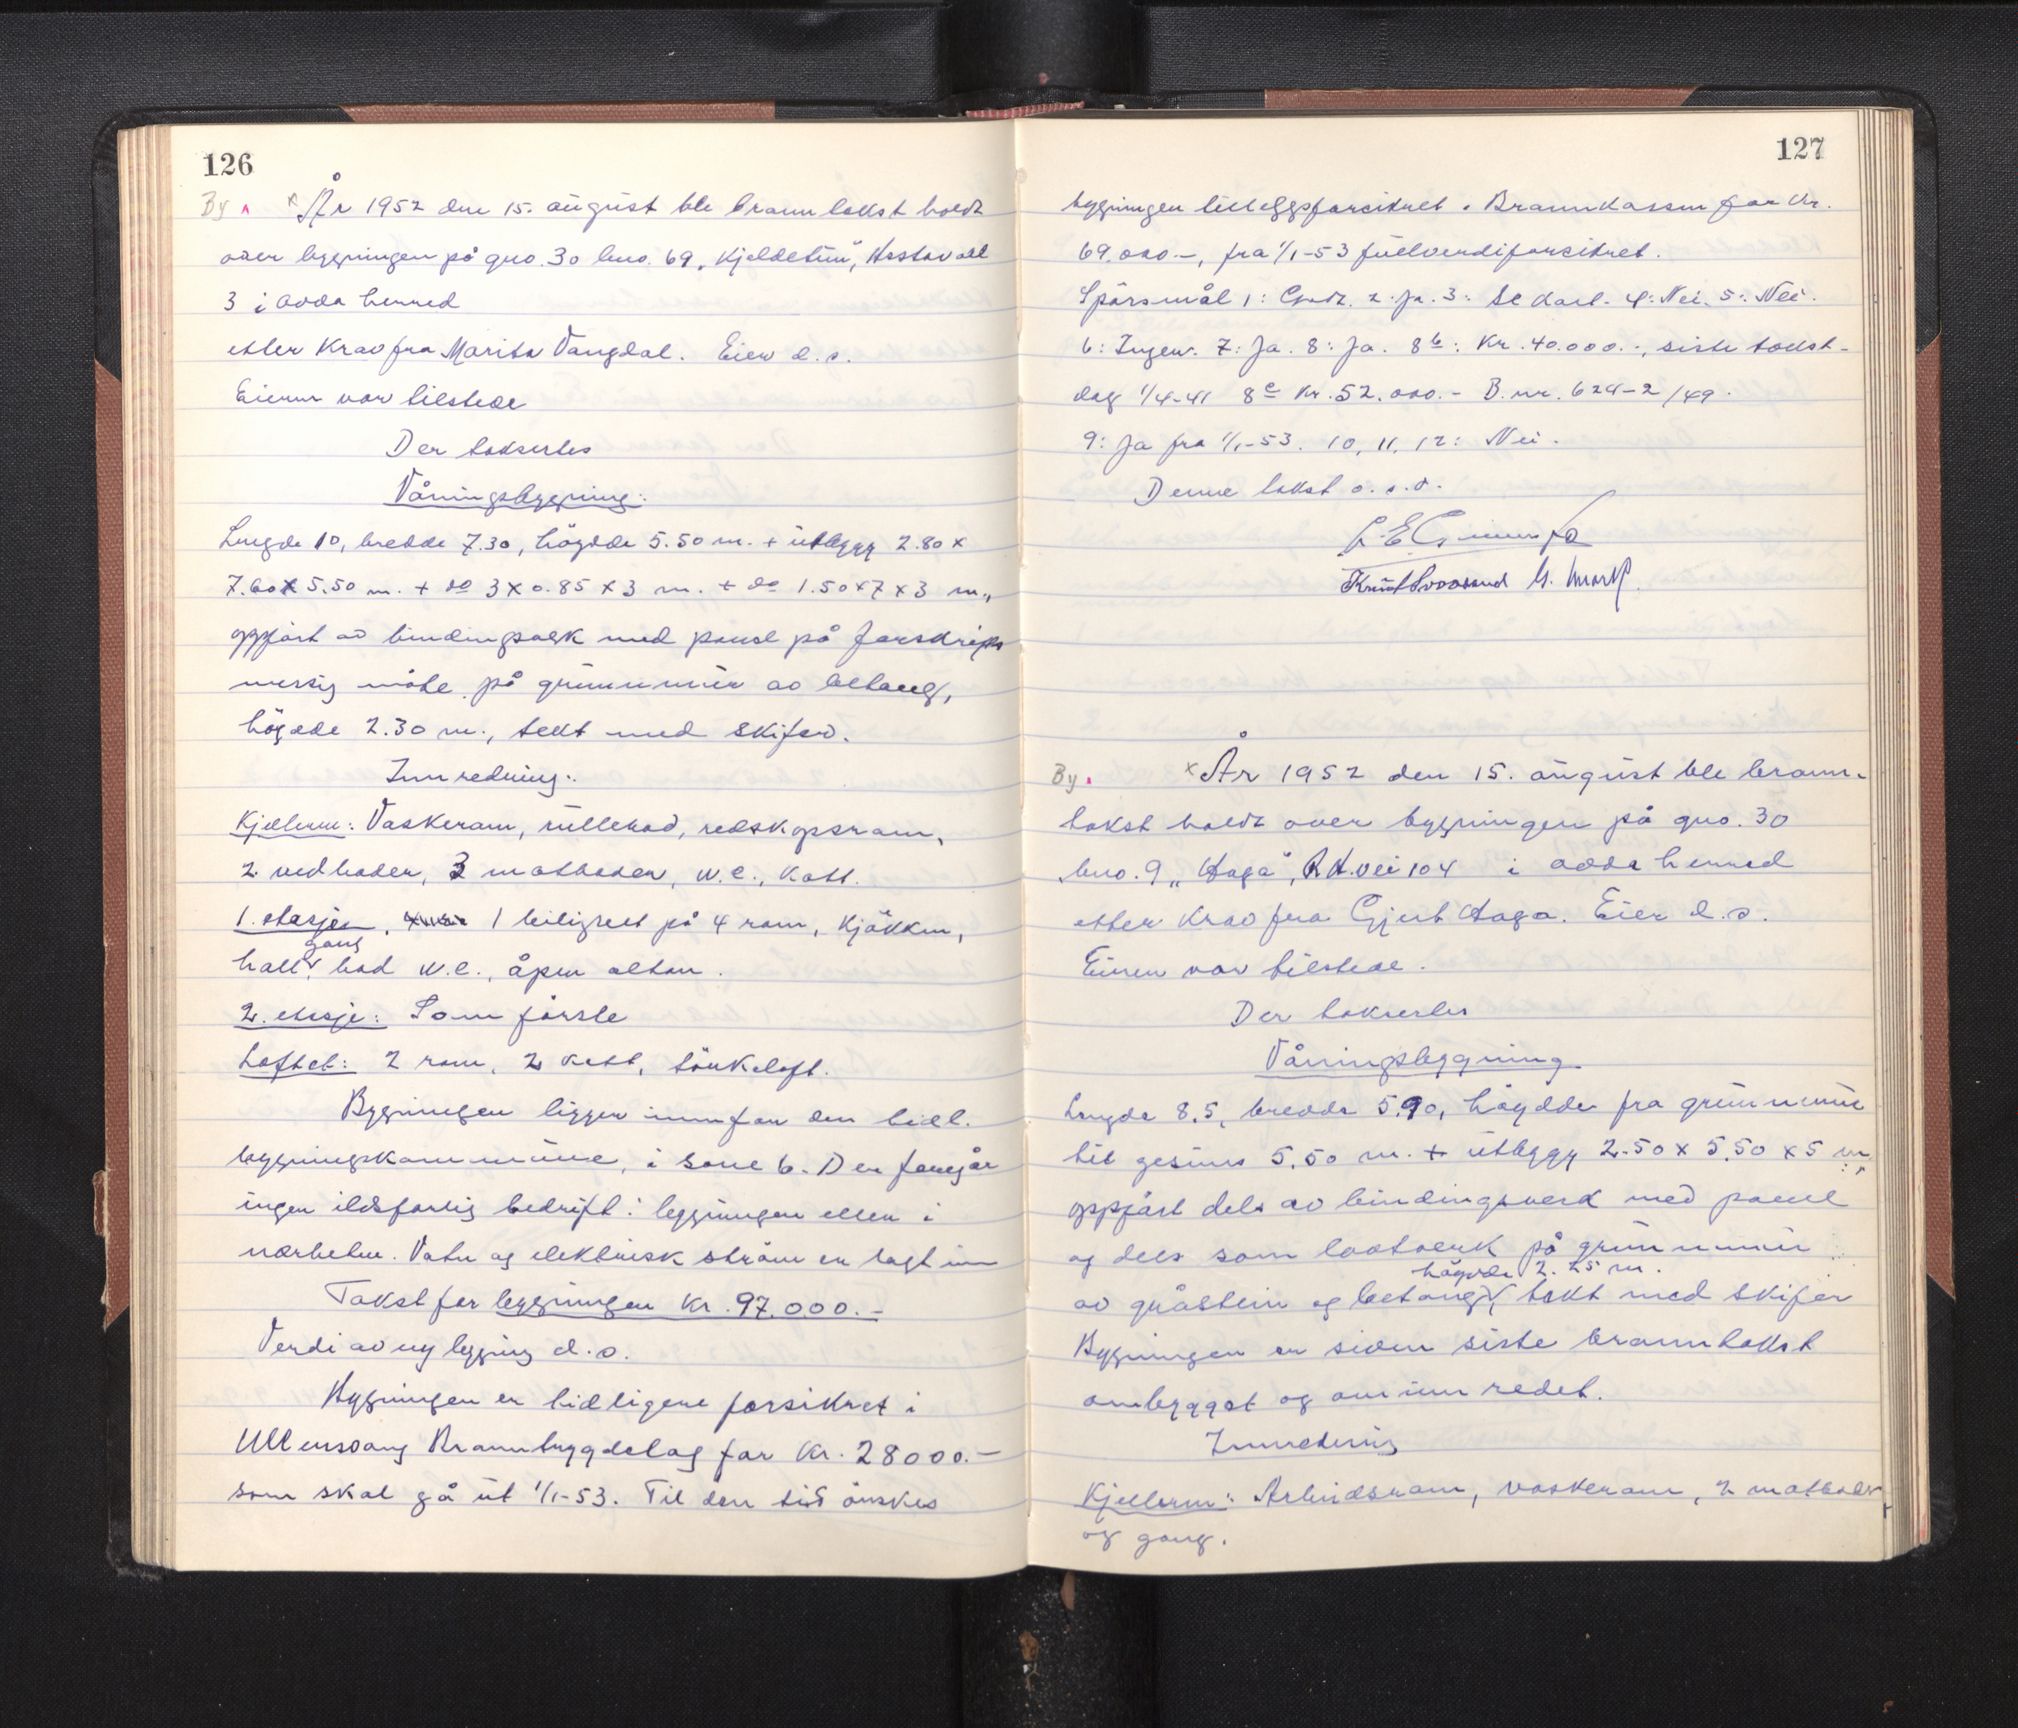 126
By. x År 1952 den 15. august ble branntakst holdt
over bygningen på gno. 30 bno. 69 „Kjeldetun", Hestavoll
3 i Odda herred
etter krav fra Marita Vangdal. Eier d.s.
Eieren var tilstede
Der taksertes
Våningsbygning:
Lengde 10, bredde 7.30, høgdde 5.50 m. + utbygg 2.80 x
7.60 x 5.50 m. + do 3 x 0.85 x 3 m. + do 1.50 x 7 x 3 m.,
oppført av bindingsverk med panel på forskrifts
messig måte på grunnmur av betong,
høgdde 2.30 m., tekt med skifer.
Innredning:
Kjelleren: Vaskerom, rullebod, redskapsrom,
2 vedboder, 3 matboder, w.c., kott.
1. etasje, 1 leilighet på 4 rom, kjøkken,
gang
hall, bad w.c., åpen altan.
2. etasje: Som første
Loftet: 2 rom, 2 kott, tørkeloft.
Bygningen ligger innfor den tidl.
bygningskommune, i sone 6. Der foregår
ingen ildsfarlig bedrift i bygningen eller i
nærheten. Vatn og elektrisk strøm er lagt inn
Takst for bygningen kr. 97.000.-
Verdi av ny bygning d.s.
Bygningen er tidligere forsikret i
Ullensvang Brannbygdelag for kr. 28000.-
som skal gå ut 1/1-53. Til den tid ønskes
127
bygningen tilleggsforsikret i Brannkassen for kr.
69.000.-, fra 1/1-53 fullverdiforsikret.
Spørsmål 1: Godt. 2: Ja. 3: Se kart. 4: Nei. 5: Nei.
6: Ingen. 7: Ja. 8: Ja. 8b: Kr. 40.000.-, siste takst-
dag 1/4-41 8c kr. 52.000.- B.nr. 624-2/49.
9: Ja fra 1/1-53. 10, 11, 12: Nei.
Denne takst o.s.v.
By. x År 1952 den 15. august ble brann-
takst holdt over bygningen på gno. 30
bno. 9 „Haga", R.H.vei 104 i Odda herred
etter krav fra Gjert Haga. Eier d.s.
Eieren var tilstede.
Der taksertes
Våningsbygning
Lengde 8.5, bredde 5.90, høgdde fra grunnmur
til gesims 5.50 m. + utbygg 2.50 x 5.50 x 5 m.,
oppført dels av bindingsverk med panel
og dels som laftverk på grunnmur
høgdde 2.25 m.
av gråstein og betong, tekt med skifer
Bygningen er siden siste branntakst
ombygget og ominnredet.
Innredning
Kjelleren: Arbeidsrom, vaskerom, 2 matboder,
og gang.